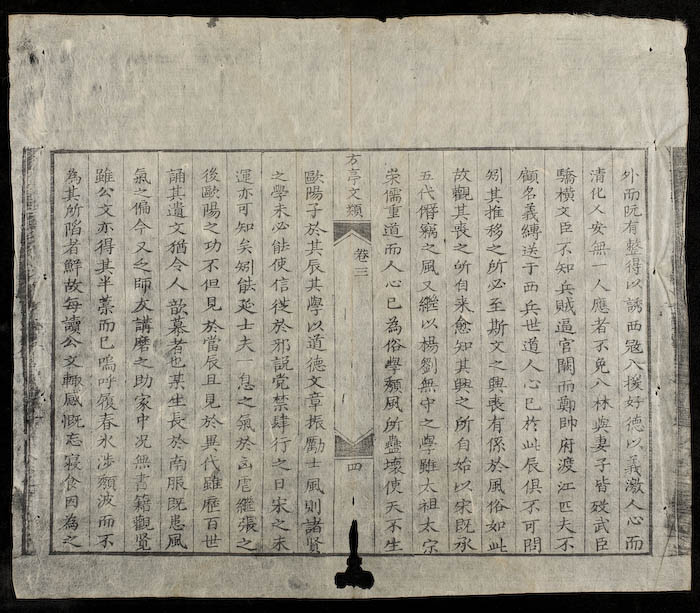 外而阮有整得以誘西冦入援好德以義激人心而
清化人安無一人應者不免入林與妻子皆歿武臣
驕橫文臣不知兵賊逼官闕而鄭帥府渡江匹夫不
顧名義縛送于西兵世道人心已於此辰俱不可問
矧其推移之所必至斯文之興喪有係於風俗如此
故觀其喪之所自来愈知其興之所自始以宋既承
五代僭竊之風又繼以楊劉無之學雖太祖太宗
崇儒重道而人心已為俗學頽風所蠱壞使天不生
方亭文類 卷三 四
歐陽子於其辰其學以道德文章振勵士風則諸賢
之學未必能使信從於邪説党禁肆行之日宋之末
運亦可知矣矧能延士夫一息之氣於虐繼張之
後歐陽之功不但見於當辰且見於異代雖歷百世
誦其遺文猶令人歆慕者也某生長於南服既患風
氣之偏今又乏師友講磨之助家中况無書籍觀覽
雖公文亦得其半藁而已嗚呼履春氷涉頽波而不
為其所陷者鮮故每讀公文輒感慨忘寢食因為之